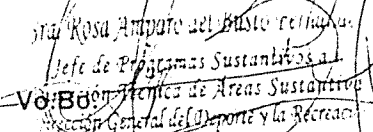 Rosa Amparo del Busto
Jefe de Programas Sustantivos a
Vo.Bo. Técnica de Áreas Sustantiv
General del Deporte y la Recreac